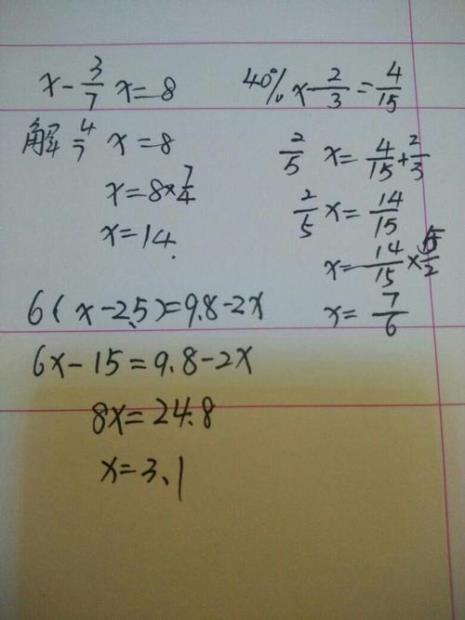 x - 3/7 x = 8
解 4/7 x = 8
x = 8 × 7/4
x = 14.
40% x - 2/3 = 4/15
2/5 x = 4/15 + 2/3
2/5 x = 14/15
x = 14/15 × 5/2
x = 7/6
6(x-2.5)=9.8-2x
6x-15=9.8-2x
8x=24.8
x=3.1